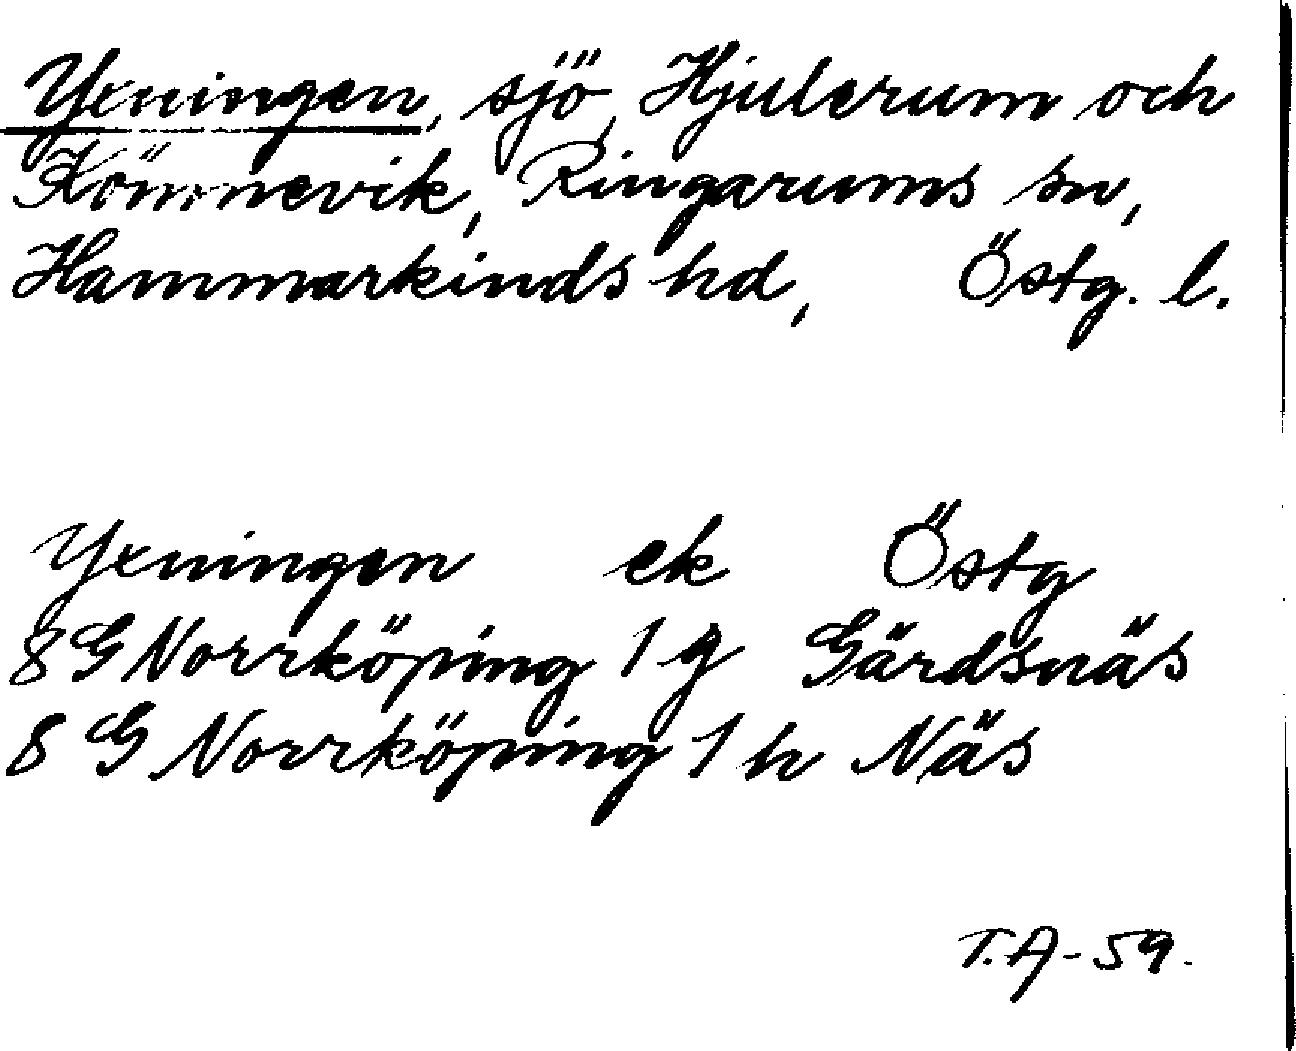 Yxningen, sjö, Hjulerum och
Kömnevik, Ringarums sn,
Hammarkinds hd, Östg. l.
Yxningen ek Östg
8 G Norrköping 1 g Gärdsnäs
8 G Norrköping 1 h Näs
T.A-59.